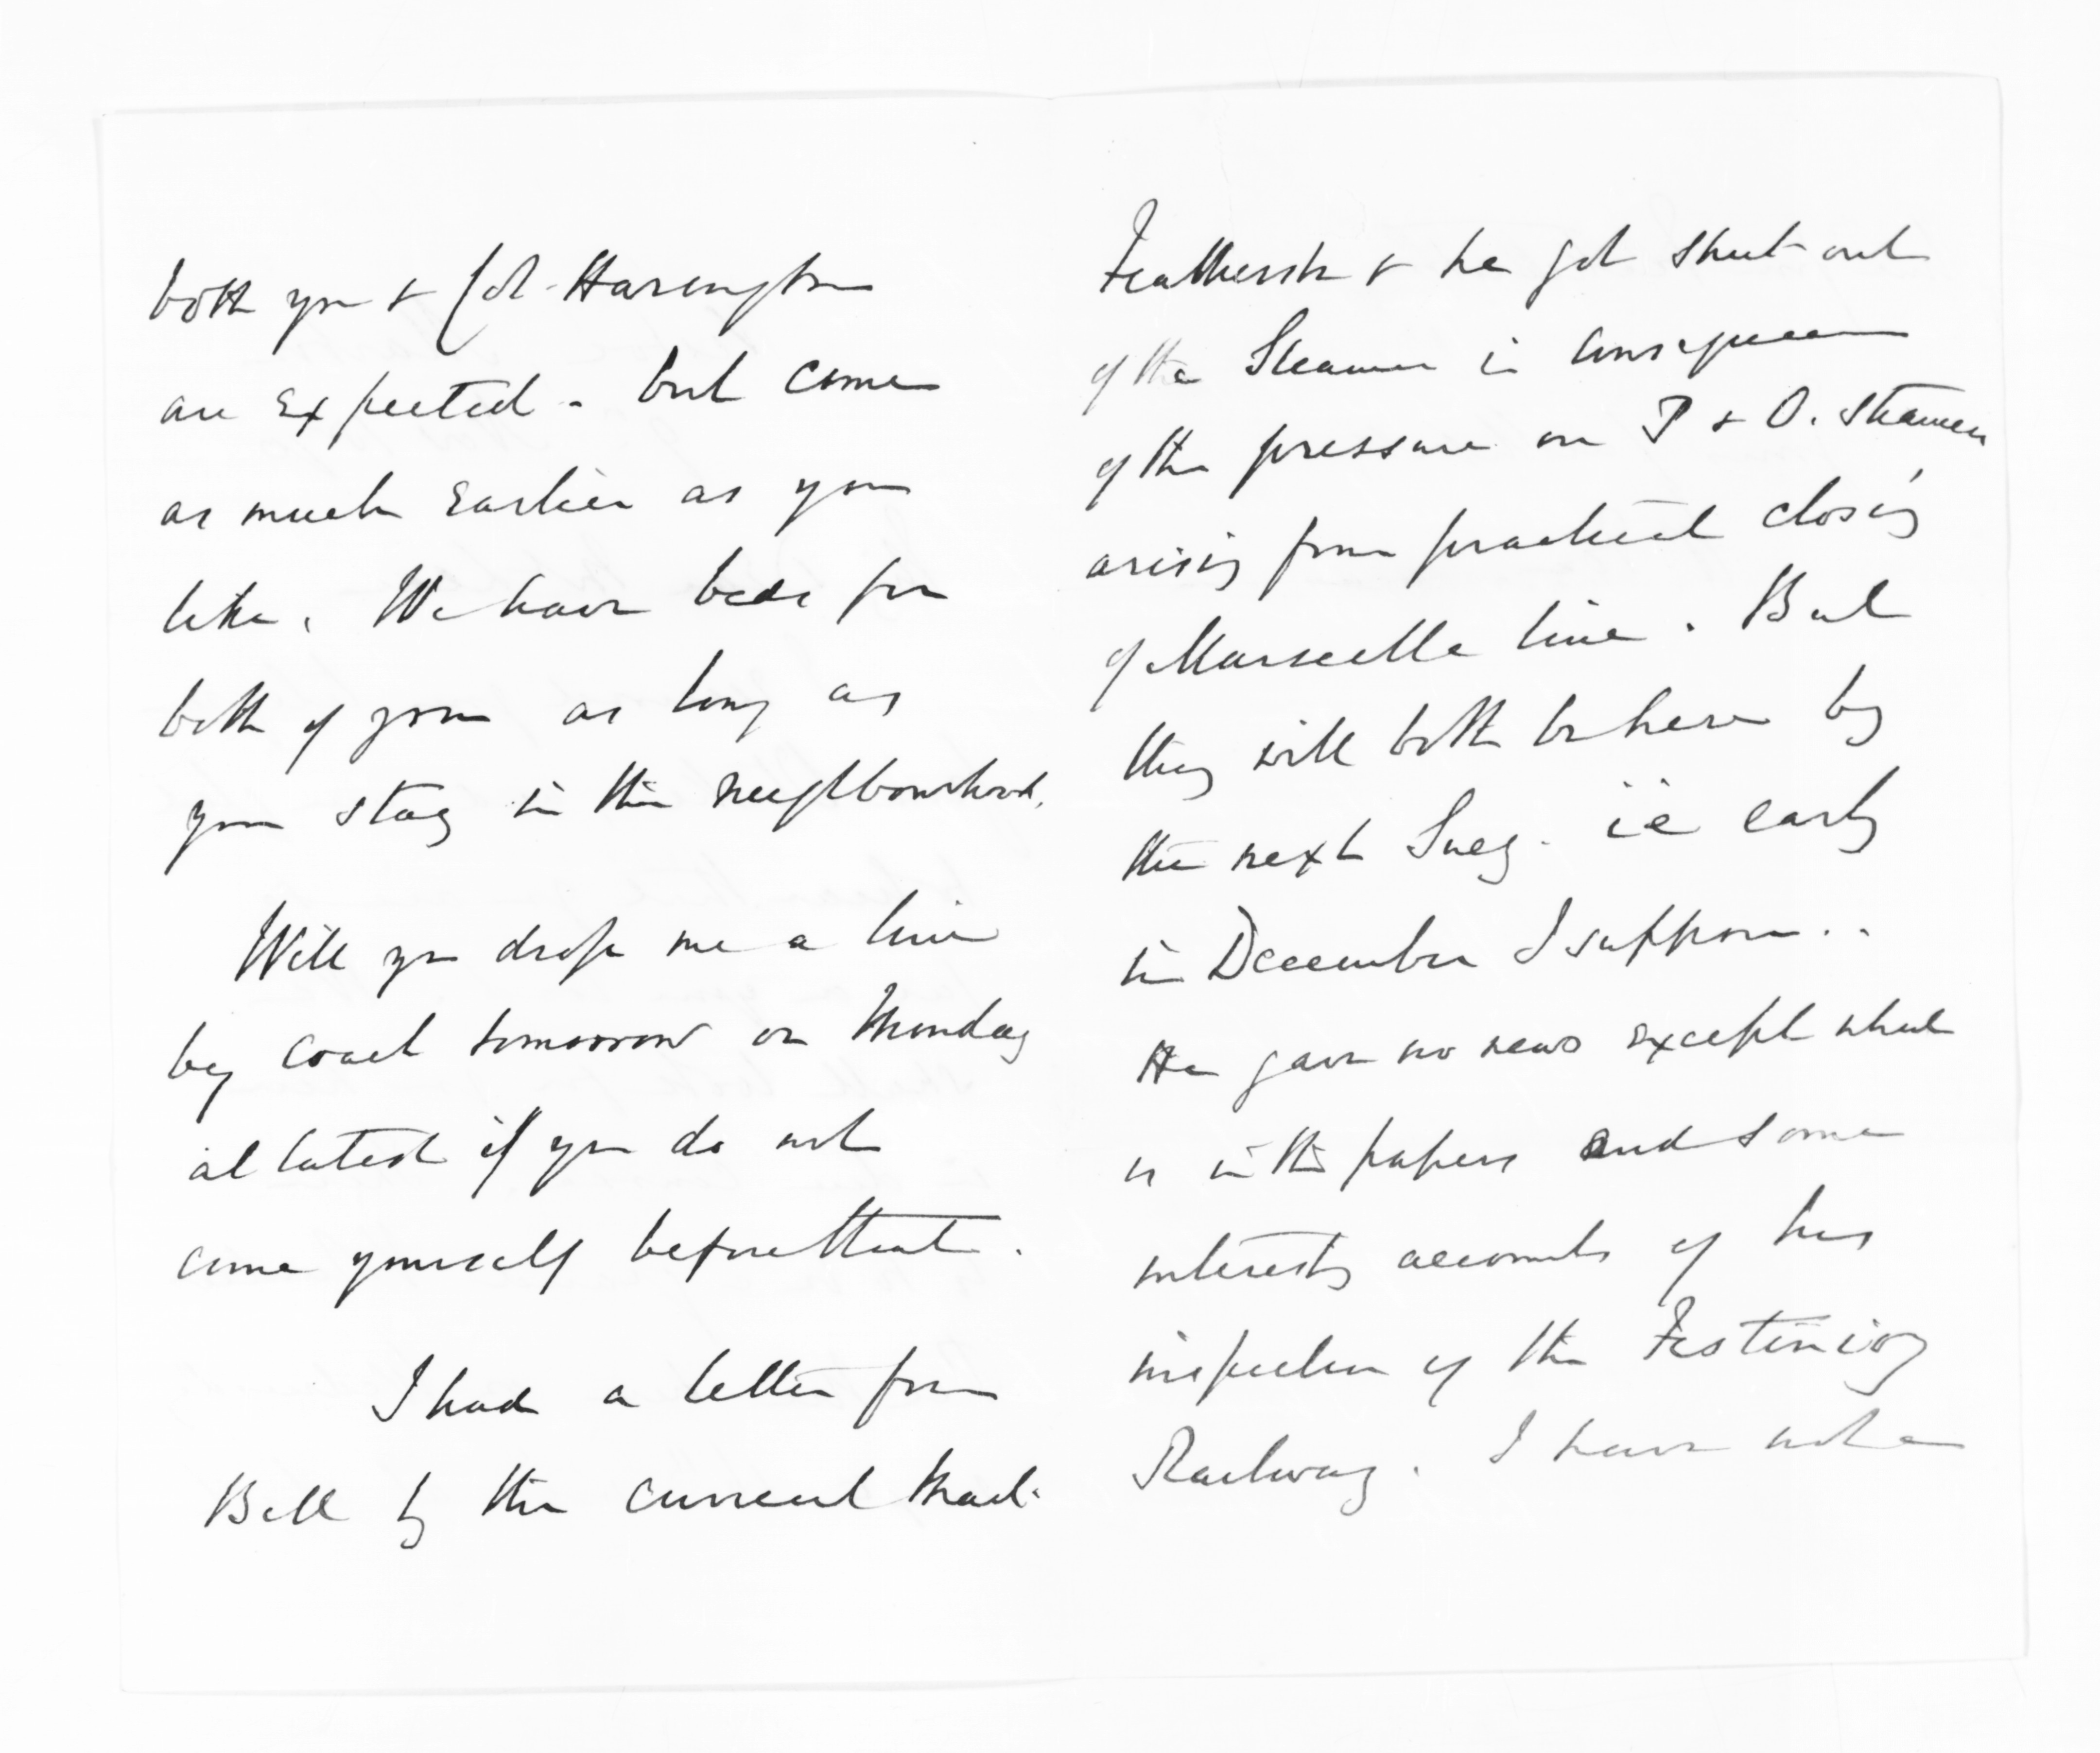 both you & Col. Harington
are expected. but come
as much earlier as you
like. We have beds for
both of you as long as
you stay in this neighbourhood.
Will you drop me a line
by coach tomorrow or Monday
at latest if you do not
come yourself before that.
I had a letter from
Bell by the current Mail.
Featherstn & he got shut out
of the Steamer in consequence
of the pressure on P & O. Steamers
arising from practical closing
of Marseille line. But
they will both be here by
the next Suez. i.e early
in December I suppose..
He gave no news except what
is in the papers and some
interestg accounts of his
inspection of the Festiniog
Railway. I have not a